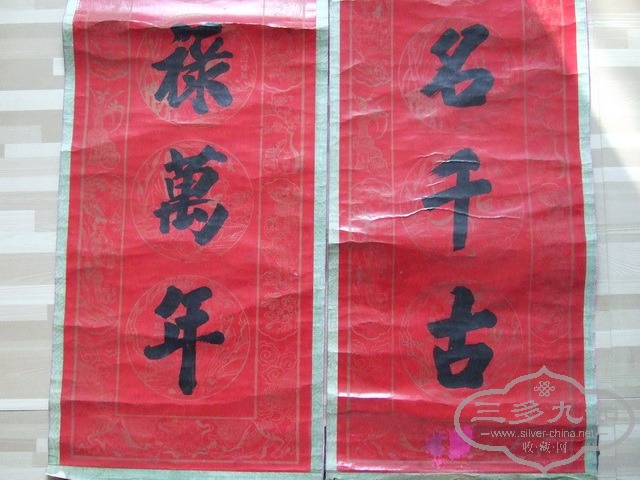 名千古
祿萬年
三多九
www.silver-china.net
收藏网